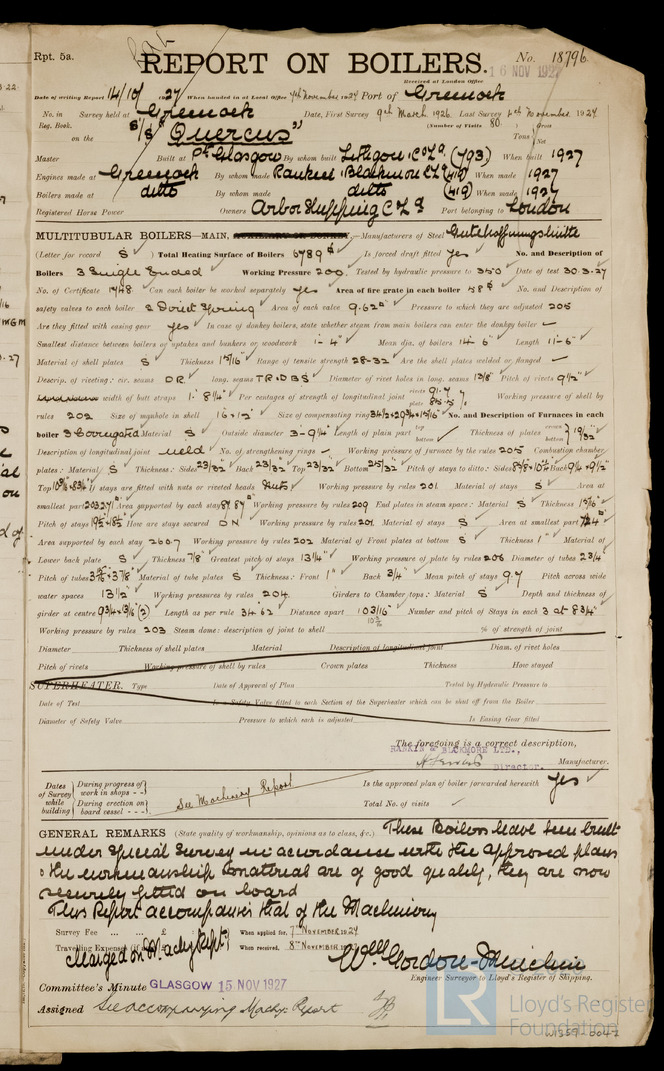 Rpt. 5a.
REPORT ON BOILERS.
No. 18796
16 NOV 1927
Received at London Office
Date of writing Report 14/10/1927 When handed in at Local Office 7th November 1927 Port of Greenock
No. in Survey held at Greenock Date, First Survey 9th March 1926 Last Survey 4th November 1927
Reg. Book. (Number of Visits 80)
on the S/S "Quercus" Tons Gross Net
Master Built at Pt Glasgow By whom built Lithgows Ld (793) When built 1927
Engines made at Greenock By whom made Rankin & Blackmore Ld (419) When made 1927
Boilers made at ditto By whom made ditto (419) When made 1927
Registered Horse Power Owners Arbor Shipping Co Ld Port belonging to London
MULTITUBULAR BOILERS—MAIN, Manufacturers of Steel Gutehoffnungshütte
(Letter for record S) Total Heating Surface of Boilers 6789 Is forced draft fitted yes No. and Description of
Boilers 3 Single Ended Working Pressure 200 Tested by hydraulic pressure to 350 Date of test 30.3.27
No. of Certificate 1748 Can each boiler be worked separately yes Area of fire grate in each boiler 58 No. and Description of
safety valves to each boiler 2 Direct Spring Area of each valve 9.62 Pressure to which they are adjusted 205
Are they fitted with easing gear yes In case of donkey boilers, state whether steam from main boilers can enter the donkey boiler —
Smallest distance between boilers or uptakes and bunkers or woodwork 1'-4" Mean dia. of boilers 14'-6" Length 11'-6"
Material of shell plates S Thickness 1 5/16" Range of tensile strength 28-32 Are the shell plates welded or flanged —
Descrip. of riveting: cir. seams DR long. seams TR.DBS Diameter of rivet holes in long. seams 1 3/8 Pitch of rivets 9 1/2"
width of butt straps 1'-8 1/4" Per centages of strength of longitudinal joint rivets 91.7 plate 85.5 Working pressure of shell by
rules 202 Size of manhole in shell 16 × 12 Size of compensating ring No. and Description of Furnaces in each
boiler 3 Corrugated Material S Outside diameter 3-9 1/4 Length of plain part top bottom Thickness of plates crown bottom 19/32"
Description of longitudinal joint weld No. of strengthening rings — Working pressure of furnace by the rules 205 Combustion chamber
plates: Material S Thickness: Sides 23/32 Back 23/32 Top 23/32 Bottom 25/32 Pitch of stays to ditto: Sides Back 9 1/4 × 9 1/2"
Top If stays are fitted with nuts or riveted heads Nuts Working pressure by rules 201 Material of stays S Area at
smallest part Area supported by each stay Working pressure by rules 209 End plates in steam space: Material S Thickness 1 5/16"
Pitch of stays How are stays secured DN Working pressure by rules 201 Material of stays S Area at smallest part
Area supported by each stay Working pressure by rules 202 Material of Front plates at bottom S Thickness 1" Material of
Lower back plate S Thickness 7/8" Greatest pitch of stays 13 1/4" Working pressure of plate by rules 206 Diameter of tubes 2 3/4
Pitch of tubes Material of tube plates S Thickness: Front 1" Back 3/4" Mean pitch of stays 9.7 Pitch across wide
water spaces 13 1/2" Working pressures by rules 204 Girders to Chamber tops: Material S Depth and thickness of
girder at centre Length as per rule 34.62 Distance apart 10 3/16" Number and pitch of Stays in each 3 at 8 3/4"
Working pressure by rules 203 Steam dome: description of joint to shell % of strength of joint
Diameter Thickness of shell plates Material Description of longitudinal joint Diam. of rivet holes
Pitch of rivets Working pressure of shell by rules Crown plates Thickness How stayed
SUPERHEATER. Type Date of Approval of Plan Tested by Hydraulic Pressure to
Date of Test Is a Safety Valve fitted to each Section of the Superheater which can be shut off from the Boiler
Diameter of Safety Valve Pressure to which each is adjusted Is Easing Gear fitted
The foregoing is a correct description,
RANKIN & BLACKMORE LTD.,
Director. Manufacturer.
Dates of Survey while building
During progress of work in shops - -
During erection on board vessel - - -
See Machinery Report
Is the approved plan of boiler forwarded herewith Yes
Total No. of visits
GENERAL REMARKS (State quality of workmanship, opinions as to class, &c.) These Boilers have been built
under Special Survey in accordance with the approved plans
& the workmanship & material are of good quality, they are now
securely fitted on board
This Report accompanies that of the Machinery
Survey Fee ... ... £ : : When applied for, 7th November 1927
Travelling Expenses (if any) £ : : When received, 8th November 1927
Charged on Machy Rept.
Wm Gordon-
Engineer Surveyor to Lloyd's Register of Shipping.
Committee's Minute GLASGOW 15 NOV 1927
Assigned See accompanying Machy. Report
LR Lloyd's Register Foundation
W1359-0042